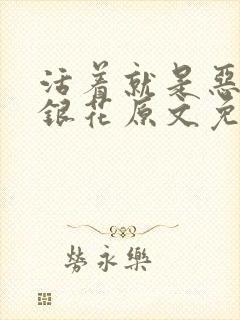 活着就是恶
銀花原文免
勞永樂